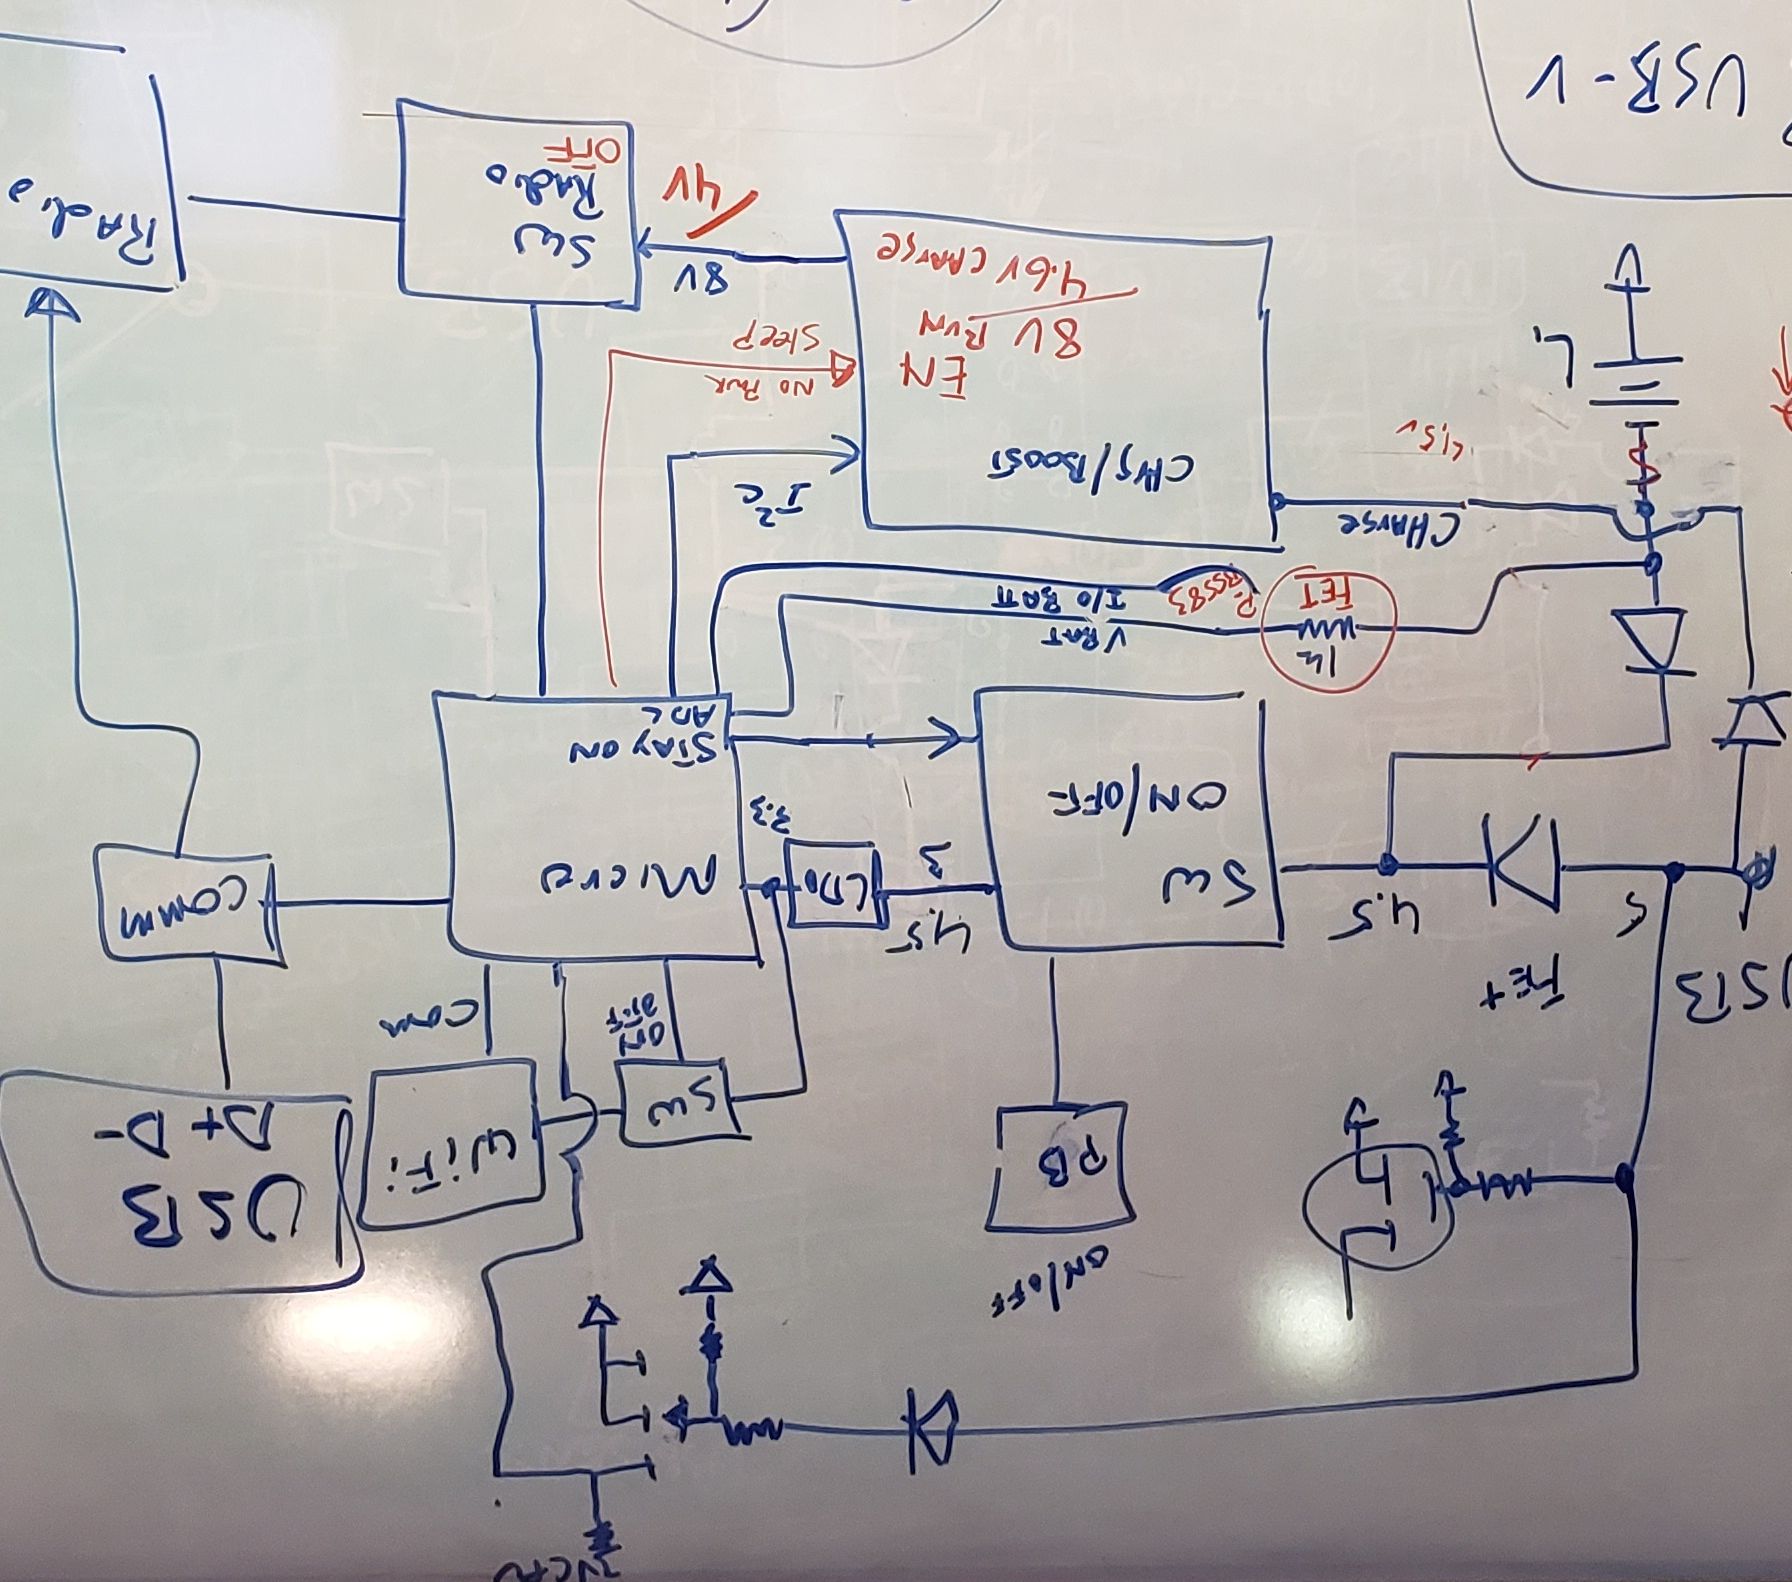 VCPU
ON/OFF
PB
USB
D+ D-
WiFi
SW
ON
OFF
COMM
FET
USB
5
4.5
SW
ON/OFF
4.5
3
LDO
3.3
Micro
STAY ON
ADC
COMM
1K
FET
VBAT
I/O BATT
BSS83
CHARGE
4.5V
Li
CHG/BOOST
EN
8V RUN
4.6V CHARGE
I²C
NO PWR
SLEEP
8V
4V
SW
Radio
OFF
RADio
USB-V